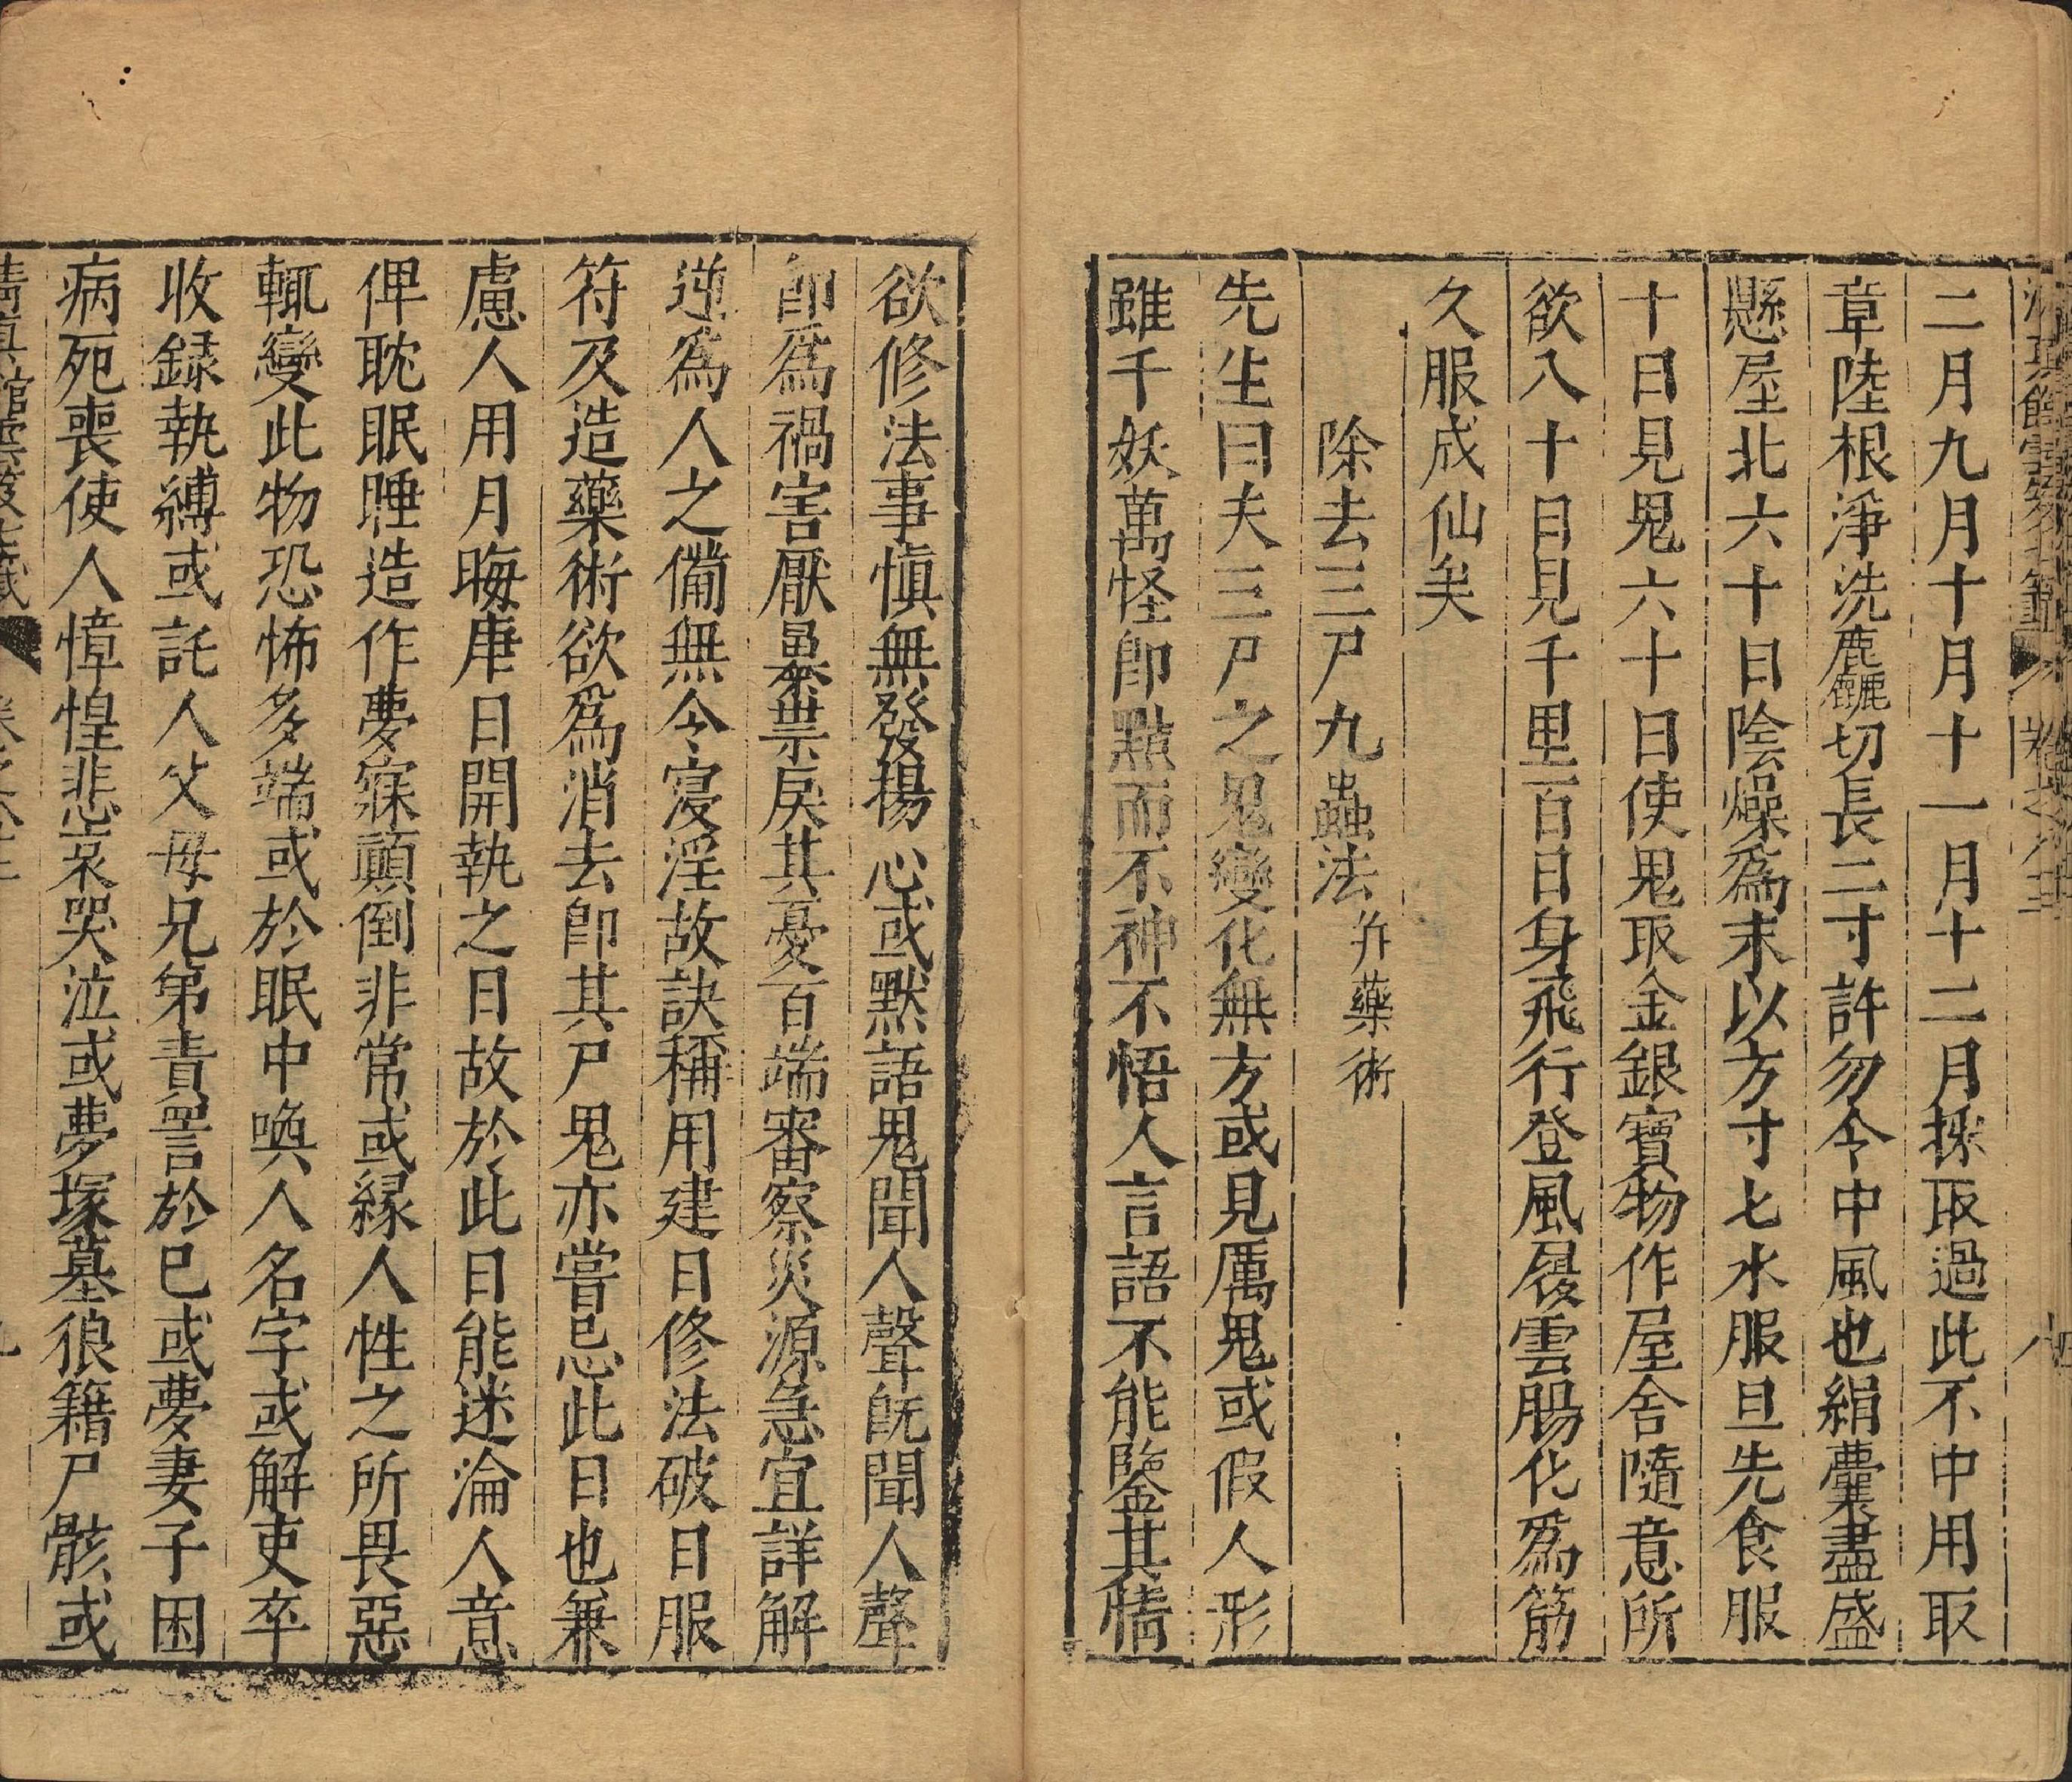 二月九月十月十一月十二月採取過此不中用取
章陸根淨洗麁䴡切長二寸許勿令中風也絹囊盡盛
懸屋北六十日陰燥為末以方寸匕水服旦先食服
十日見鬼六十日使鬼取金銀寶物作屋舍隨意所
欲八十日見千里百日身飛行登風履雲腸化為筋
久服成仙矣
除去三尸九蟲法并藥術
先生曰夫三尸之鬼變化無方或見厲鬼或假人形
雖千妖萬怪卽點而不神不悟人言語不能鑒其情
欲修法事慎無發揚心或默語鬼聞人聲旣聞人聲
卽為禍害厭㬥祟戾其憂百端審察災源急宜詳解
逆為人之備無令寖淫故訣稱用建日修法破日服
符及造藥術欲為消去卽其尸鬼亦嘗忌此日也兼
慮人用月晦庚日開執之日故於此日能迷淪人意
俾耽眠睡造作夢寐顛倒非常或緣人性之所畏惡
輒變此物恐怖多端或於眠中喚人名字或解吏卒
收録執縛或託人父母兄弟責詈於已或夢妻子困
病死喪使人慞惶悲哀哭泣或夢塚墓狼籍尸骸或